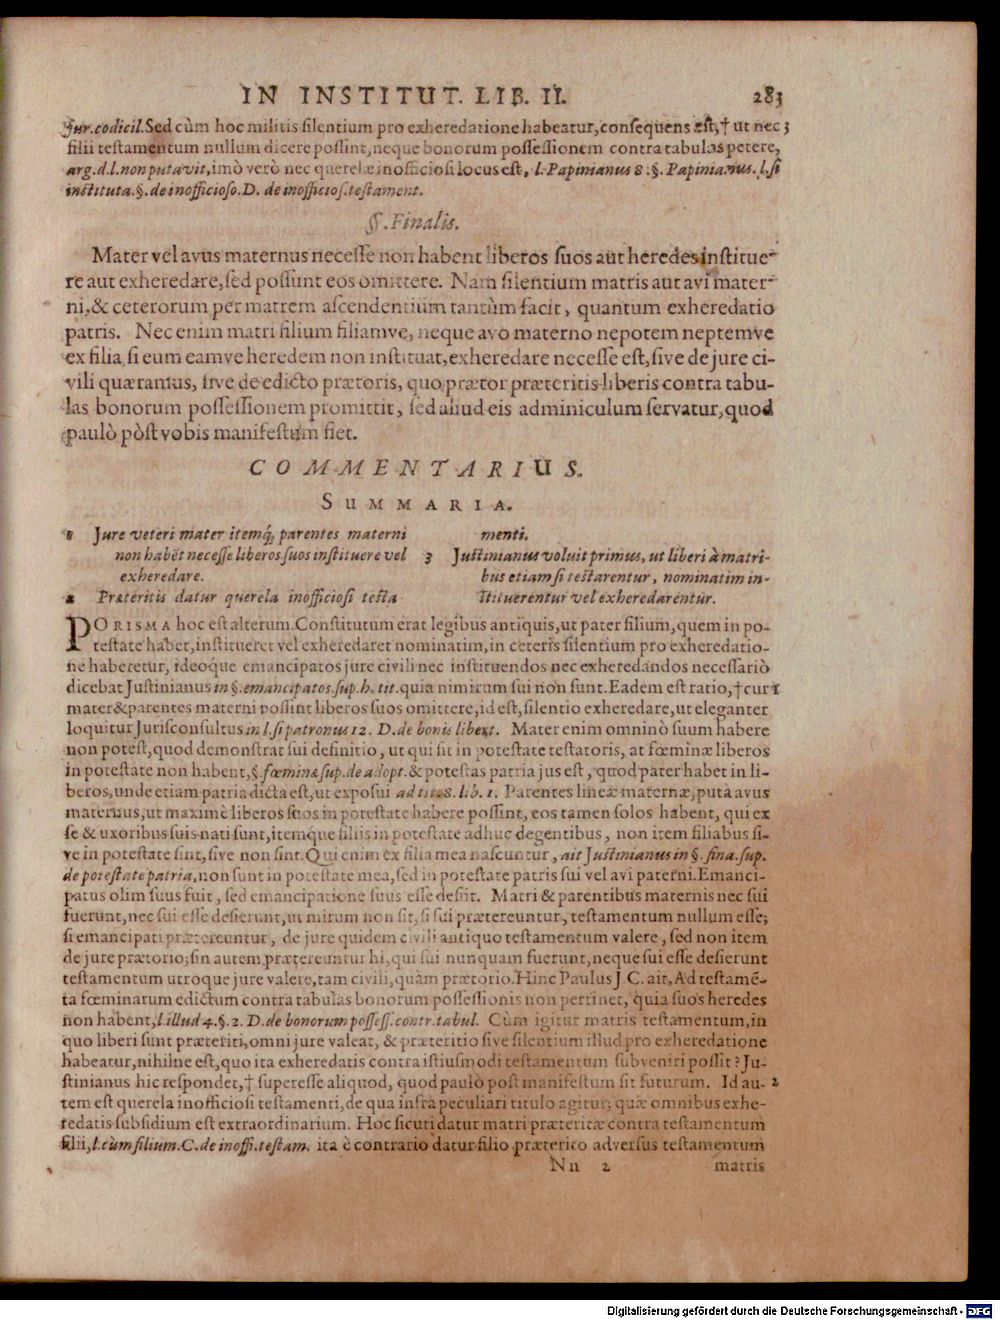 IN INSTITUT. LIB. II. 283
Jur.codicil. Sed cùm hoc militis silentium pro exheredatione habeatur, consequens est, † ut nec 3
filii testamentum nullum dicere possint, neque bonorum possessionem contra tabulas petere,
arg.d.l.non putavit, imò verò nec querelæ inofficiosi locus est, l. Papinianus 8. §. Papinianus. l. si
instituta. §. de inofficioso. D. de inofficios. testament.
§. Finalis.
Mater vel avus maternus necesse non habent liberos suos aut heredes institue-
re aut exheredare, sed possunt eos omittere. Nam silentium matris aut avi mater-
ni, & ceterorum per matrem ascendentium tantùm facit, quantum exheredatio
patris. Nec enim matri filium filiamve, neque avo materno nepotem neptemve
ex filia si eum eamve heredem non instituat, exheredare necesse est, sive de jure ci-
vili quæramus, sive de edicto prætoris, quo prætor præteritis liberis contra tabu-
las bonorum possessionem promittit, sed aliud eis adminiculum servatur, quod
paulò pòst vobis manifestum fiet.
COMMENTARIUS.
SUMMARIA.
1 Jure veteri mater itemq; parentes materni
non habēt necesse liberos suos instituere vel
exheredare.
2 Præteritis datur querela inofficiosi testa-
menti.
3 Justinianus voluit primus, ut liberi à matri-
bus etiamsi testarentur, nominatim in-
stituerentur vel exheredarentur.
PORISMA hoc est alterum. Constitutum erat legibus antiquis, ut pater filium, quem in po-
testate habet, institueret vel exheredaret nominatim, in ceteris silentium pro exheredatio-
ne haberetur, ideoque emancipatos jure civili nec instituendos nec exheredandos necessariò
dicebat Justinianus in §. emancipatos. sup. h. tit. quia nimirum sui non sunt. Eadem est ratio, † cur 1
mater & parentes materni possint liberos suos omittere, id est, silentio exheredare, ut eleganter
loquitur Jurisconsultus in l. si patronus 12. D. de bonis libert. Mater enim omninò suum habere
non potest, quod demonstrat sui definitio, ut qui sit in potestate testatoris, at fœminæ liberos
in potestate non habent, §. fœminæ sup. de adopt. & potestas patria jus est, quod pater habet in li-
beros, unde etiam patria dicta est, ut exposui ad tit. 8. lib. 1. Parentes lineæ maternæ, putà avus
maternus, ut maximè liberos suos in potestate habere possint, eos tamen solos habent, qui ex
se & uxoribus suis nati sunt, itemque filiis in potestate adhuc degentibus, non item filiabus si-
ve in potestate sint, sive non sint. Qui enim ex filia mea nascuntur, ait Justinianus in §. fina. sup.
de potestate patria, non sunt in potestate mea, sed in potestate patris sui vel avi paterni. Emanci-
patus olim suus fuit, sed emancipatione suus esse desiit. Matri & parentibus maternis nec sui
fuerunt, nec sui esse desierunt, ut mirum non sit, si sui prætereuntur, testamentum nullum esse;
si emancipati prætereuntur, de jure quidem civili antiquo testamentum valere, sed non item
de jure prætorio; sin autem prætereuntur hi, qui sui nunquam fuerunt, neque sui esse desierunt
testamentum utroque jure valere, tam civili, quàm prætorio. Hinc Paulus J.C. ait, Ad testamē-
ta fœminarum edictum contra tabulas bonorum possessionis non pertinet, quia suos heredes
non habent, l. illud 4. §. 2. D. de bonorum possess. contr. tabul. Cùm igitur matris testamentum, in
quo liberi sunt præteriti, omni jure valeat, & præteritio sive silentium illud pro exheredatione
habeatur, nihilne est, quo ita exheredatis contra istiusmodi testamentum subveniri possit? Ju-
stinianus hic respondet, † superesse aliquod, quod paulò post manifestum sit futurum. Id au- 2
tem est querela inofficiosi testamenti, de qua infra peculiari titulo agitur; quæ omnibus exhe-
redatis subsidium est extraordinarium. Hoc sicuti datur matri præteritæ contra testamentum
filii, l. cùm filium. C. de inoffi. testam. ita è contrario datur filio præterito adversus testamentum
Nn 2 matris
Digitalisierung gefördert durch die Deutsche Forschungsgemeinschaft - DFG